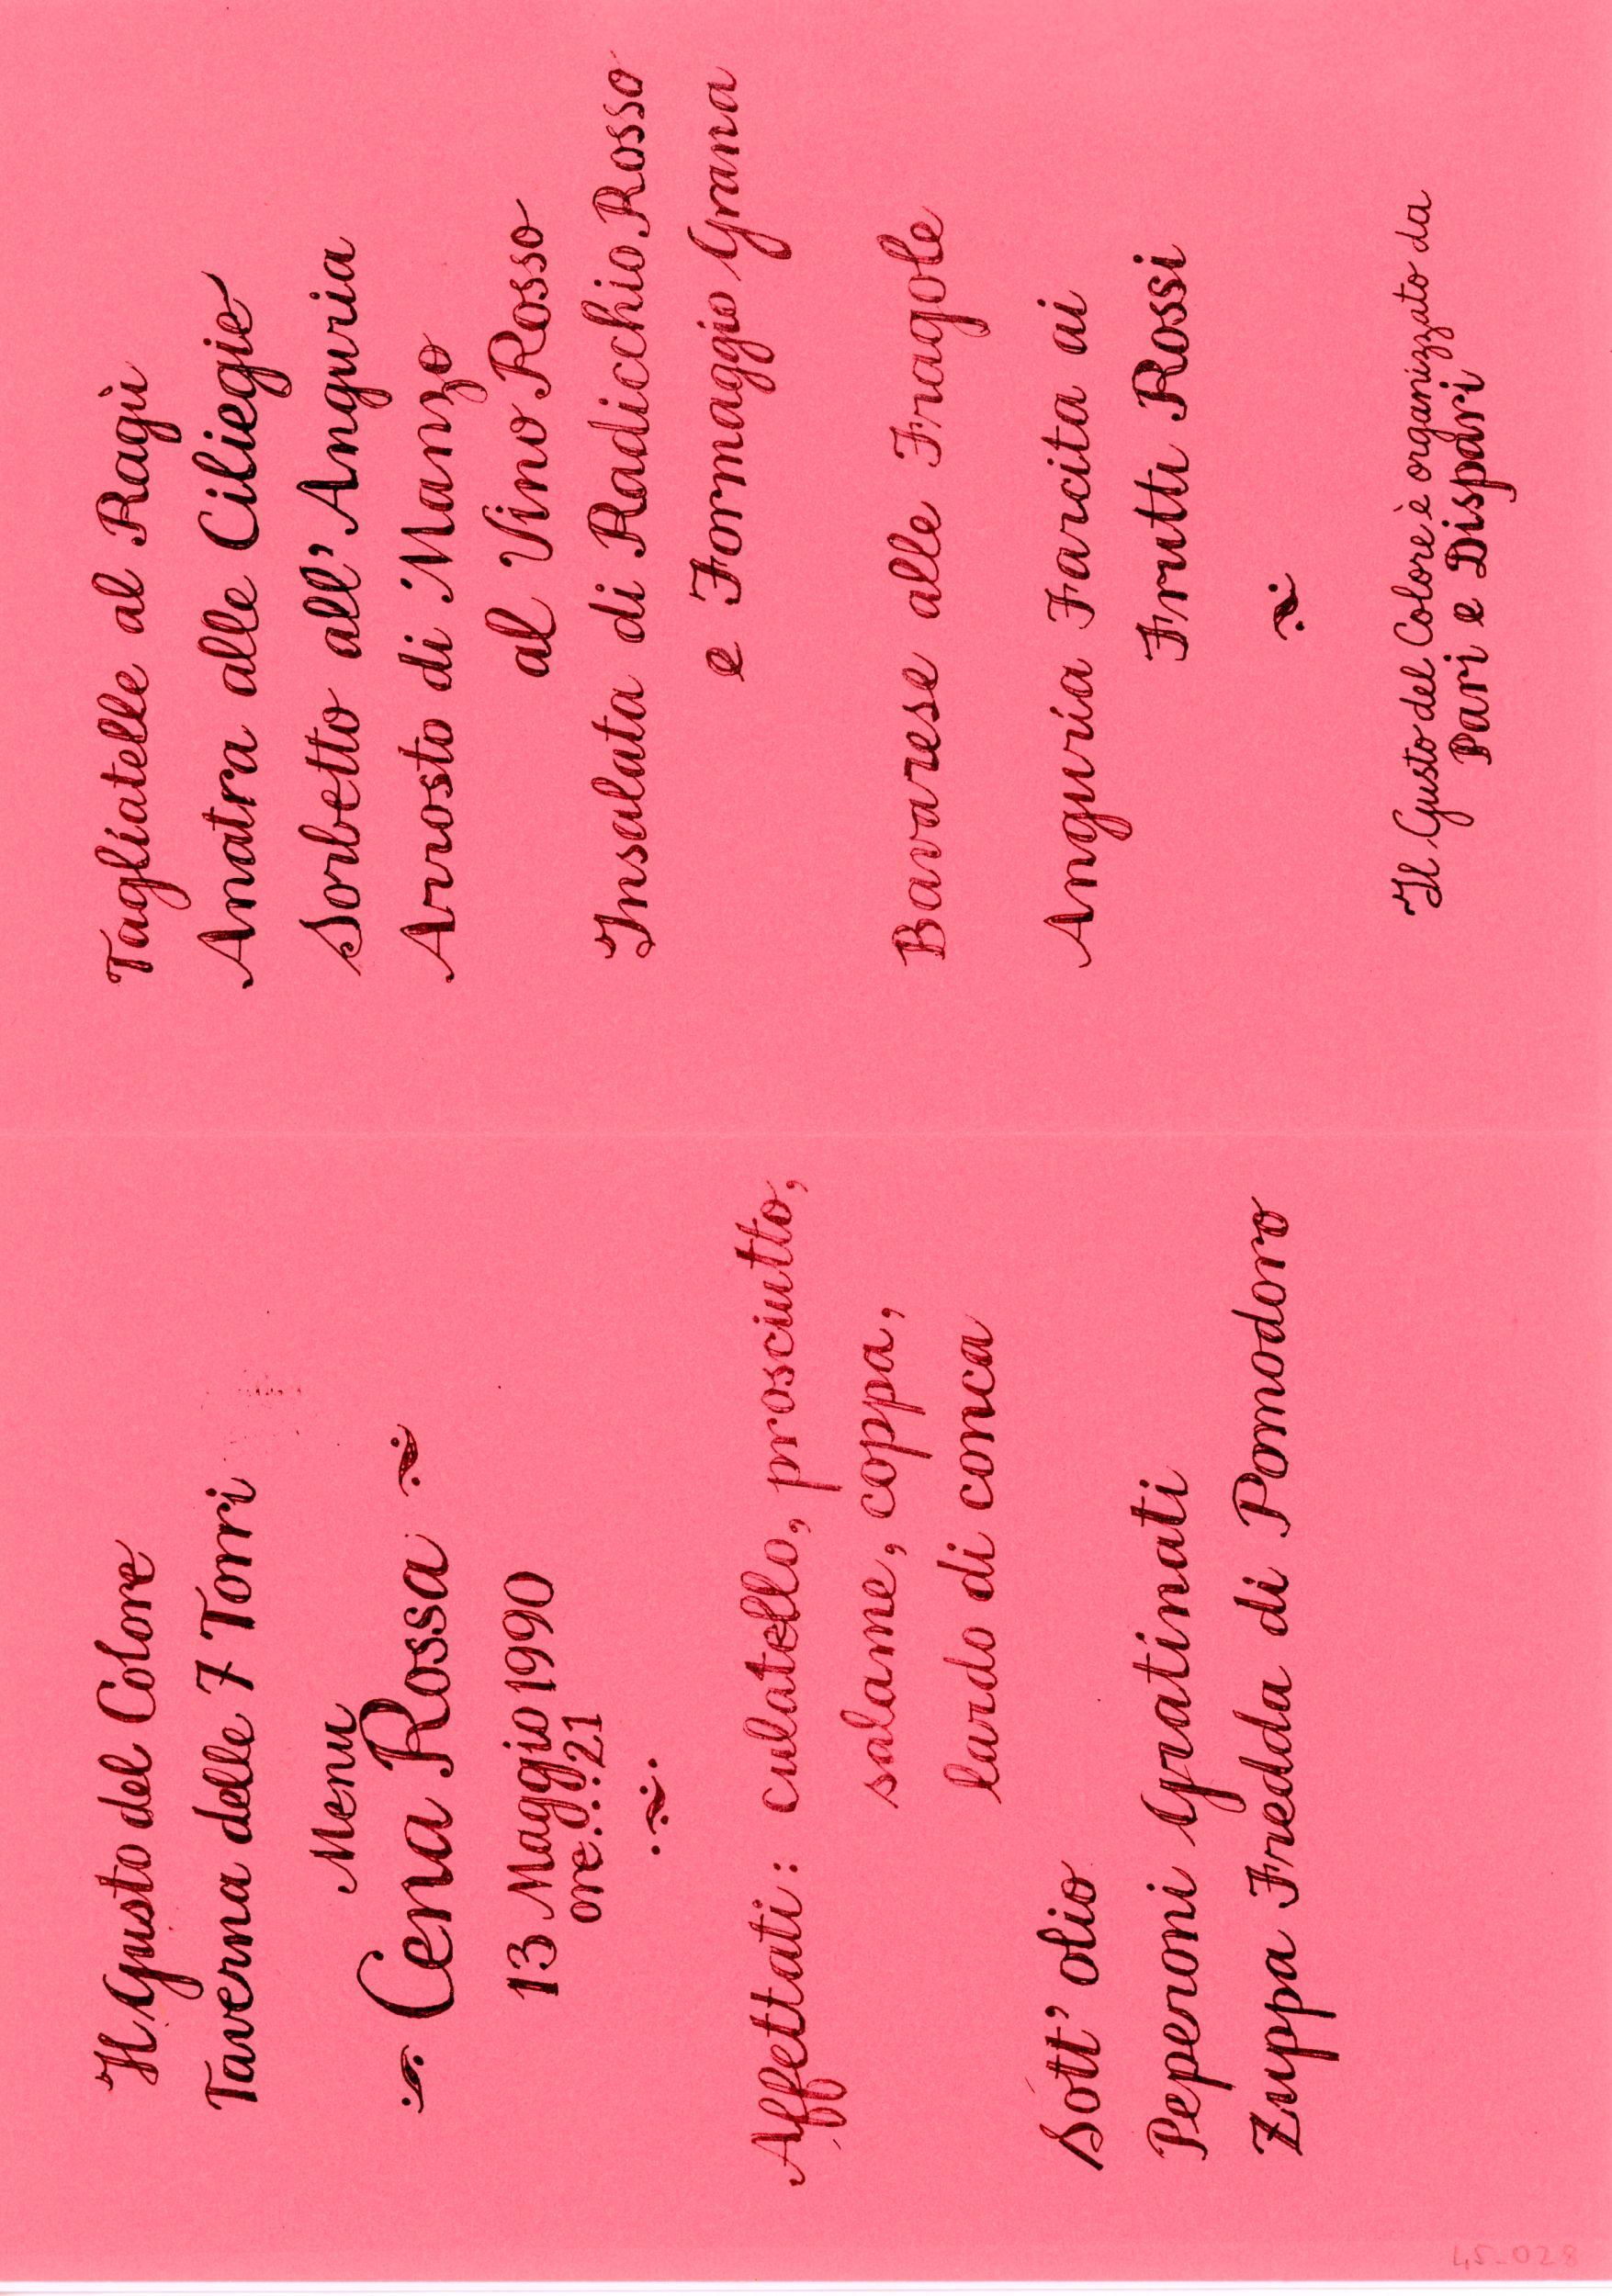 Il Gusto del Colore
Taverna delle 7 Torri
Menu
Cena Rossa
13 Maggio 1990
ore...21
Affettati: culatello, prosciutto,
salame, coppa,
lardo di conca
Sott' olio
Peperoni Gratinati
Zuppa Fredda di Pomodoro
Tagliatelle al Ragù
Anatra alle Ciliegie
Sorbetto all' Anguria
Arrosto di Manzo
al Vino Rosso
Insalata di Radicchio Rosso
e Formaggio Grana
Bavarese alle Fragole
Anguria Farcita ai
Frutti Rossi
Il Gusto del Colore è organizzato da
Pari e Dispari
45-028